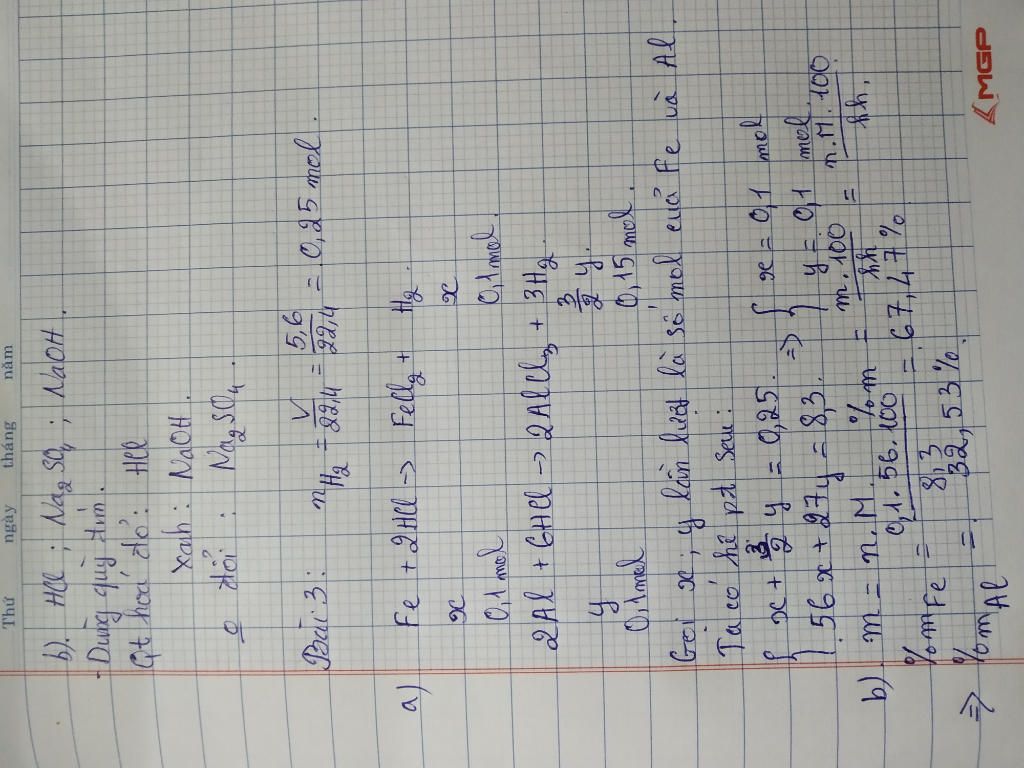 Thứ ngày tháng năm
b). HCl ; Na2SO4 ; NaOH.
- Dùng quỳ tím.
Qt hoá đỏ : HCl
xanh : NaOH.
o đổi : Na2SO4.
Bài 3 : nH2 = V/22,4 = 5,6/22,4 = 0,25 mol.
a) Fe + 2HCl -> FeCl2 + H2.
x x
0,1 mol 0,1 mol.
2Al + 6HCl -> 2AlCl3 + 3H2.
y 3/2 y.
0,1 mol 0,15 mol.
Gọi x ; y lần lượt là số mol của Fe và Al.
Ta có hệ pt sau :
{ x + 3/2 y = 0,25. => { x = 0,1 mol
{ 56x + 27y = 8,3. { y = 0,1 mol.
b). m = n.M. %m = m.100/hh = n.M.100/hh.
%mFe = 0,1.56.100/8,3 = 67,47%.
=> %mAl = 32,53%.
MGP